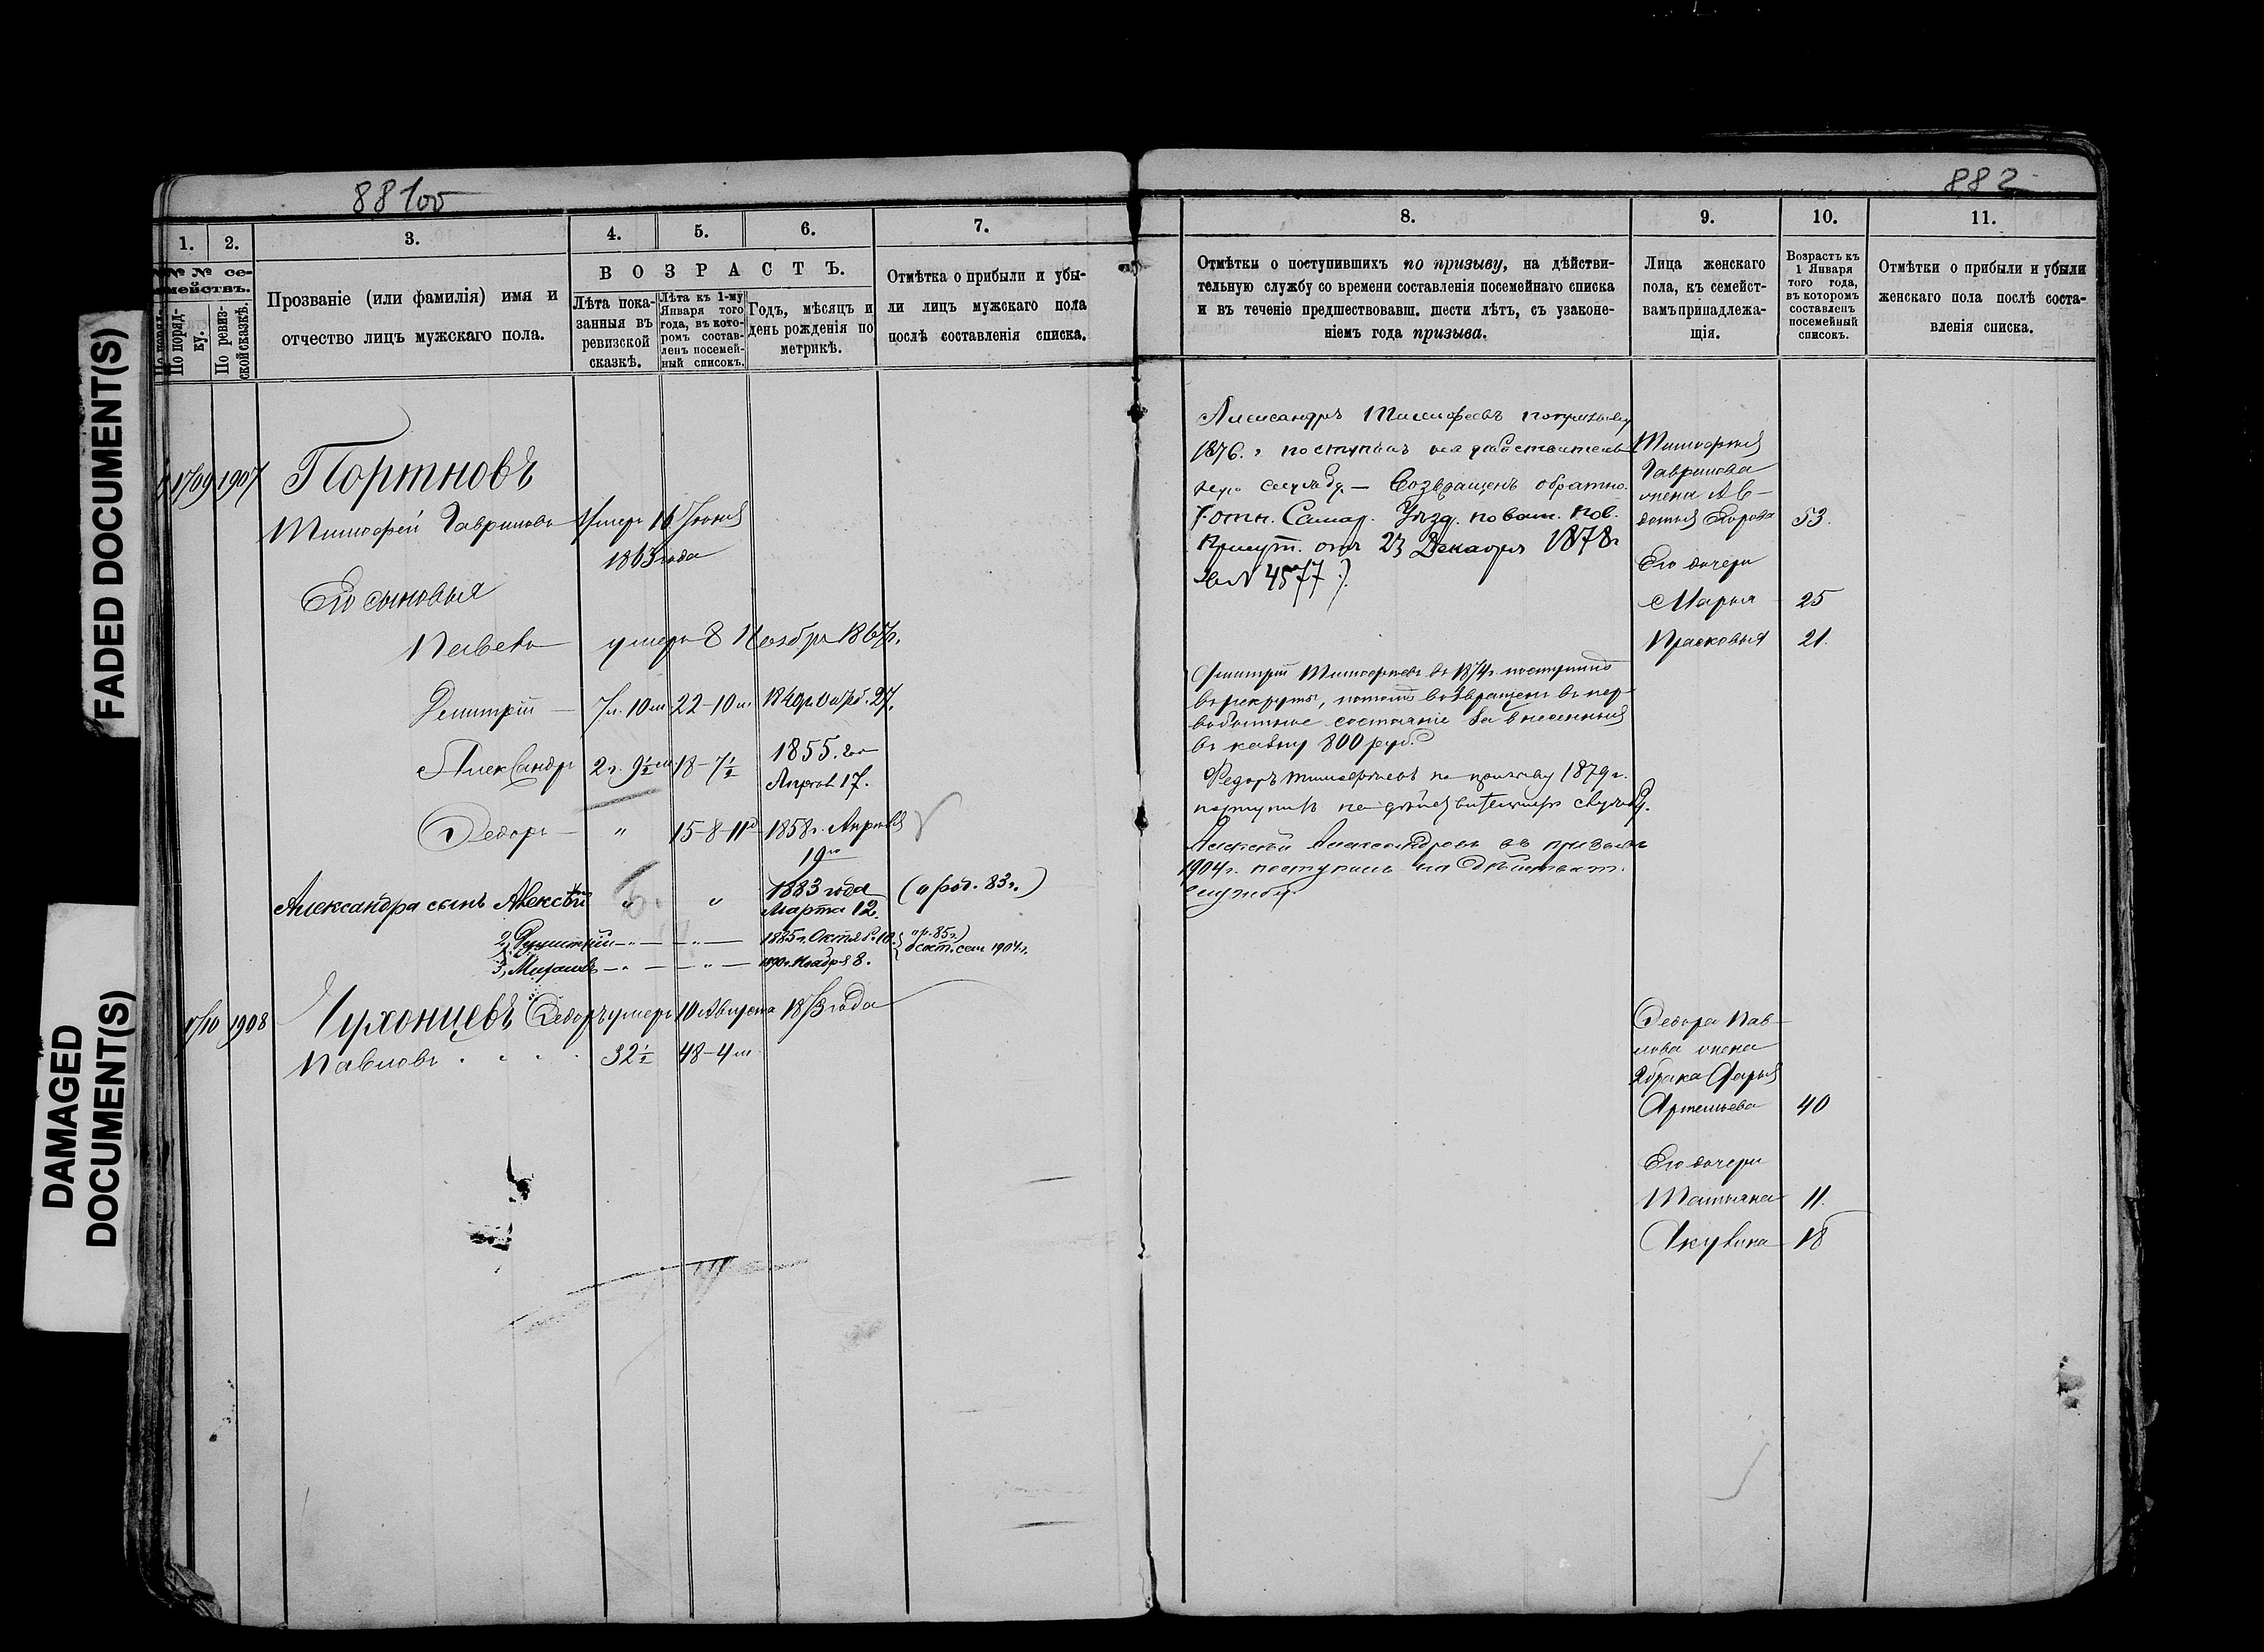 FADED DOCUMENT(S)
DAMAGED
DOCUMENT(S)
882
1. 2. 3. 4. 5. 6. 7.
№№ се-
мействъ.
По поряд-
ку.
По ревиз-
ской сказкѣ.
Прозваніе (или фамилія) имя и
отчество лицъ мужскаго пола.
ВОЗРАСТЪ.
Лѣта пока-
занныя въ
ревизской
сказкѣ.
Лѣта къ 1-му
Января того
года, въ кото-
ромъ состав-
ленъ посемей-
ный списокъ.
Годъ, мѣсяцъ и
день рожденія по
метрикѣ.
Отмѣтка о прибыли и убы-
ли лицъ мужскаго пола
послѣ составленія списка.
1709 1907 Портновъ
Тимофей Гавриловъ Умеръ 16 Іюня
1863 года
Его сыновья
Павелъ умеръ 8 Ноября 1867г.
Димитрій 7л. 10м 22-10м. Октяб. 27.
Александръ 2г. 9½м 18-7½ 1855. года
Апрѣля 17.
Ѳедоръ " 15-8-11д 1858г. Апрѣля
19го
Александра сынъ Алексѣй " " 1883 года (о род. 83г.)
Марта 12.
2, Димитрій " " 1885г. Октяб. 10.
3, Михаилъ " " 1890г. Ноября 8.
1710 1908 Чухонцевъ Ѳедоръ умеръ 10 Августа 1873 года
Павловъ 32½ 48-4м
8. 9. 10. 11.
Отмѣтки о поступившихъ по призыву, на дѣйстви-
тельную службу со времени составленія посемейнаго списка
и въ теченіе предшествовавш. шести лѣтъ, съ узаконе-
ніемъ года призыва.
Лица женскаго
пола, къ семейст-
вамъ принадлежа-
щія.
Возрастъ къ
1 Января
того года,
въ которомъ
составленъ
посемейный
списокъ.
Отмѣтки о прибыли и убыли
женскаго пола послѣ соста-
вленія списка.
Александръ Тимофеевъ по призыву
1876. г поступилъ на дѣйствитель
ную службу. — Возвращенъ обратно.
(отн. Самар. Уѣзд. по воин. пов.
Присут. отъ 23 Декабря 1878г
за № 4577).
Димитрій Тимофеевъ въ 1874г. поступилъ
въ рекруты, потомъ возвращенъ въ пер-
вобытное состояніе за внесенныя
въ казну 800 руб.
Ѳедоръ Тимофеевъ по призыву 1879г.
поступилъ на дѣйствительную службу.
Алексѣй Александровъ въ призывъ
1904г. поступилъ на дѣйствит.
службу.
Тимофея
Гаврилова
жена Ав-
дотья Егорова 53.
Его дочери
Марья 25
Прасковья 21.
Ѳедора Пав-
лова жена
2 брака Дарья
Артемьева 40
Его дочери
Татьяна 11.
Акулина 18